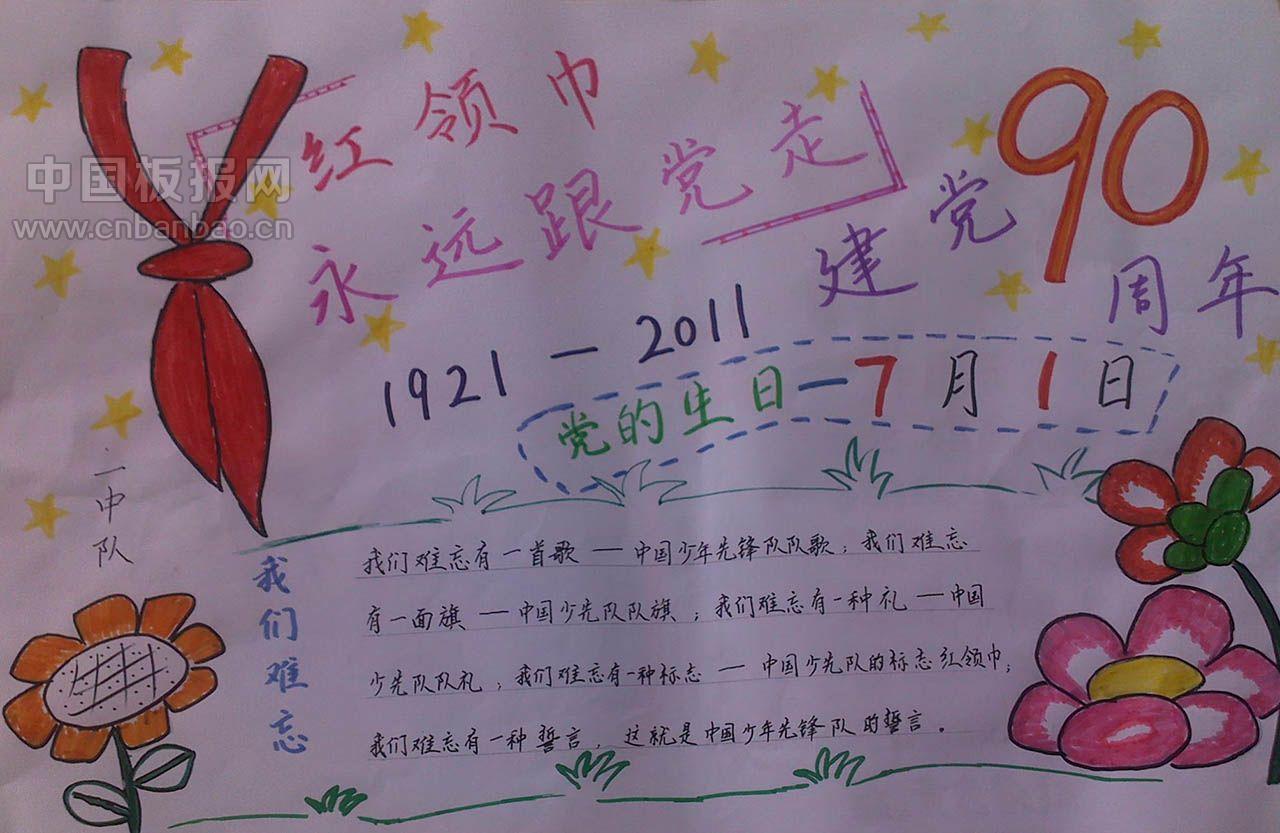 中国板报网
www.cnbanbao.cn
红领巾
永远跟党走
建党90周年
1921-2011
党的生日—7月1日
二中队
我们难忘
我们难忘有一首歌——中国少年先锋队队歌；我们难忘
有一面旗——中国少先队队旗；我们难忘有一种礼——中国
少先队队礼；我们难忘有一种标志——中国少先队的标志红领巾；
我们难忘有一种誓言，这就是中国少年先锋队的誓言。